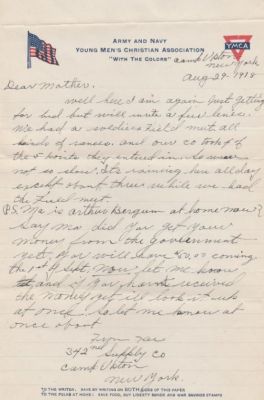 ARMY AND NAVY
YOUNG MEN'S CHRISTIAN ASSOCIATION
"WITH THE COLORS"
YMCA
Camp Upton
New York
Aug 29. 1918
Dear Mother.
Well here I am again just getting
for bed but will write a few lines.
We had a soldiers Field meet all
kinds of races. and our co took 4 of
the 5 points they entered in. So were
not so slow. Its raining hier all day
except about three while we had
the Field meet.
P.S. Ma is Arthur Bergum at home now?
Say Ma did You get your
money from the Government
yet. You will have 60.00 coming
the 1st of Sept. Now let me know
and if You havnt received
the money yet ill look it up
at once. So let me know at
once about
342nd Supply Co
Camp Upton
New York
TO THE WRITER: SAVE BY WRITING ON BOTH SIDES OF THIS PAPER
TO THE FOLKS AT HOME: SAVE FOOD, BUY LIBERTY BONDS AND WAR SAVINGS STAMPS